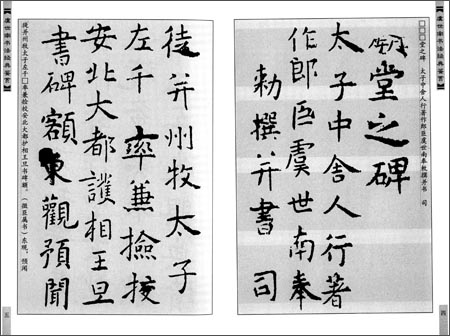 【虞世南书法经典鉴赏】
□□□堂之碑 太子中舍人行著作郎臣虞世南奉敕撰并书 司
堂之碑
太子中舍人行著
作郎臣虞世南奉
勅撰并書 司
四
徒并州牧太子
左千 率兼撿挍
安北大都護相王旦
書碑額 東觀預聞
徒并州牧太子左千□率兼检校安北大都护相王旦书碑额。(微臣属书)东观,预闻
【虞世南书法经典鉴赏】
五